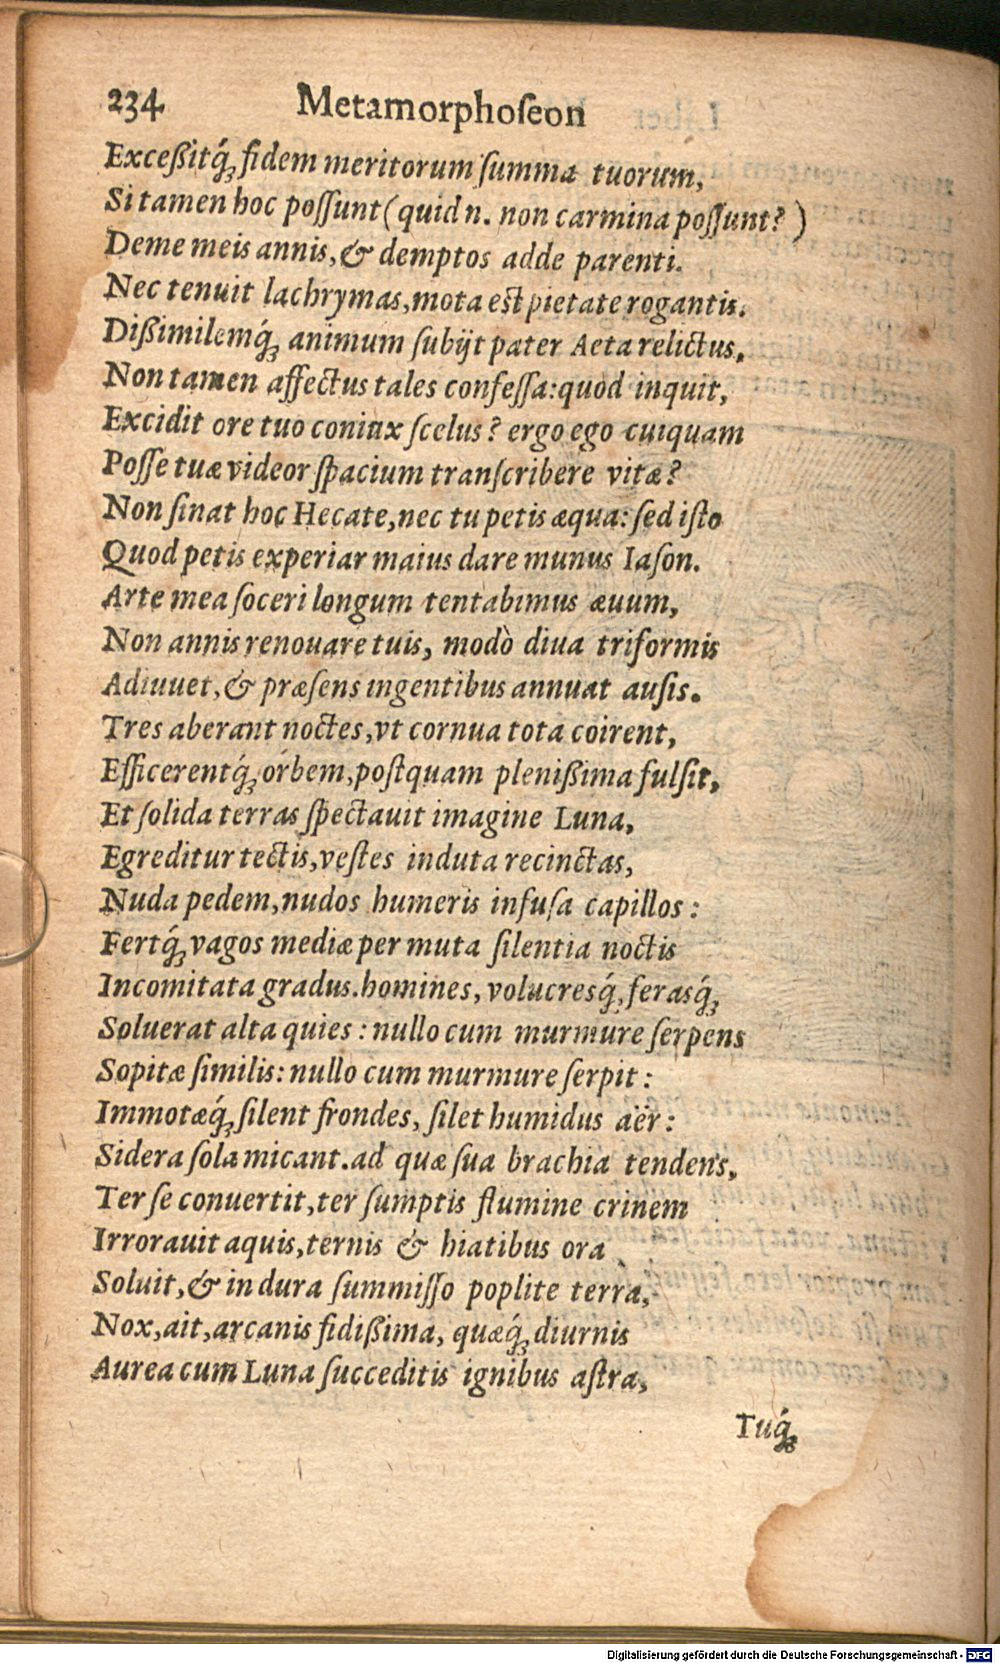 234 Metamorphoſeon
Exceßitq́;, fidem meritorum ſumma tuorum,
Si tamen hoc poſſunt (quid n. non carmina poſſunt? )
Deme meis annis, & demptos adde parenti.
Nec tenuit lachrymas, mota eſt pietate rogantis.
Dißimilemq́; animum ſubijt pater Aeta relictus,
Non tamen affectus tales confeſſa: quod inquit,
Excidit ore tuo coniux ſcelus? ergo ego cuiquam
Poſſe tuæ videor ſpacium tranſcribere vitæ?
Non ſinat hoc Hecate, nec tu petis æqua: ſed iſto
Quod petis experiar maius dare munus Iaſon.
Arte mea ſoceri longum tentabimus æuum,
Non annis renouare tuis, modò diua triformis
Adiuuet, & præſens ingentibus annuat auſis.
Tres aberant noctes, vt cornua tota coirent,
Efficerentq́; orbem, poſtquam plenißima fulſit,
Et ſolida terras ſpectauit imagine Luna,
Egreditur tectis, veſtes induta recinctas,
Nuda pedem, nudos humeris infuſa capillos :
Fertq́; vagos mediæ per muta ſilentia noctis
Incomitata gradus. homines, volucresq́;, ferasq́;
Soluerat alta quies : nullo cum murmure ſerpens
Sopitæ ſimilis: nullo cum murmure ſerpit :
Immotæq́; ſilent frondes, ſilet humidus aër :
Sidera ſola micant. ad quæ ſua brachia tendens,
Ter ſe conuertit, ter ſumptis flumine crinem
Irrorauit aquis, ternis & hiatibus ora
Soluit, & in dura ſummiſſo poplite terra,
Nox, ait, arcanis fidißima, quæq́; diurnis
Aurea cum Luna ſucceditis ignibus aſtra,
Tuq́;
Digitalisierung gefördert durch die Deutsche Forschungsgemeinschaft - DFG